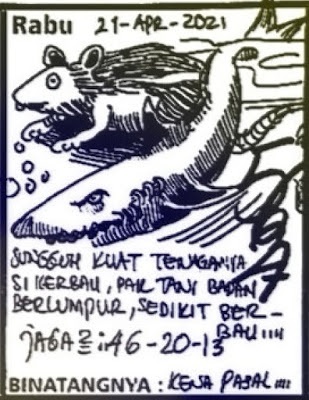 Rabu 21-APR-2021
SUNGGUH KUAT TENAGANYA
SI KERBAU, PAK TANI BADAN
BERLUMPUR, SEDIKIT BER-
BAU....
46-20-13
BINATANGNYA : KENA PAJAL....